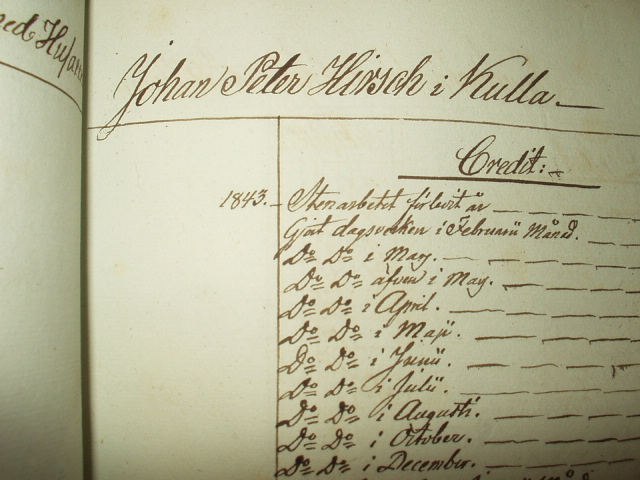 Johan Peter Hirsch i Kulla.
Credit:
1843. Stenarbetet förledit år
Gjort dagsverken i Februarii Månad.
Do Do i May.
Do Do äfven i May.
Do Do i April.
Do Do i Maji.
Do Do i Junii.
Do Do i Julii.
Do Do i Augusti.
Do Do i October.
Do Do i December.